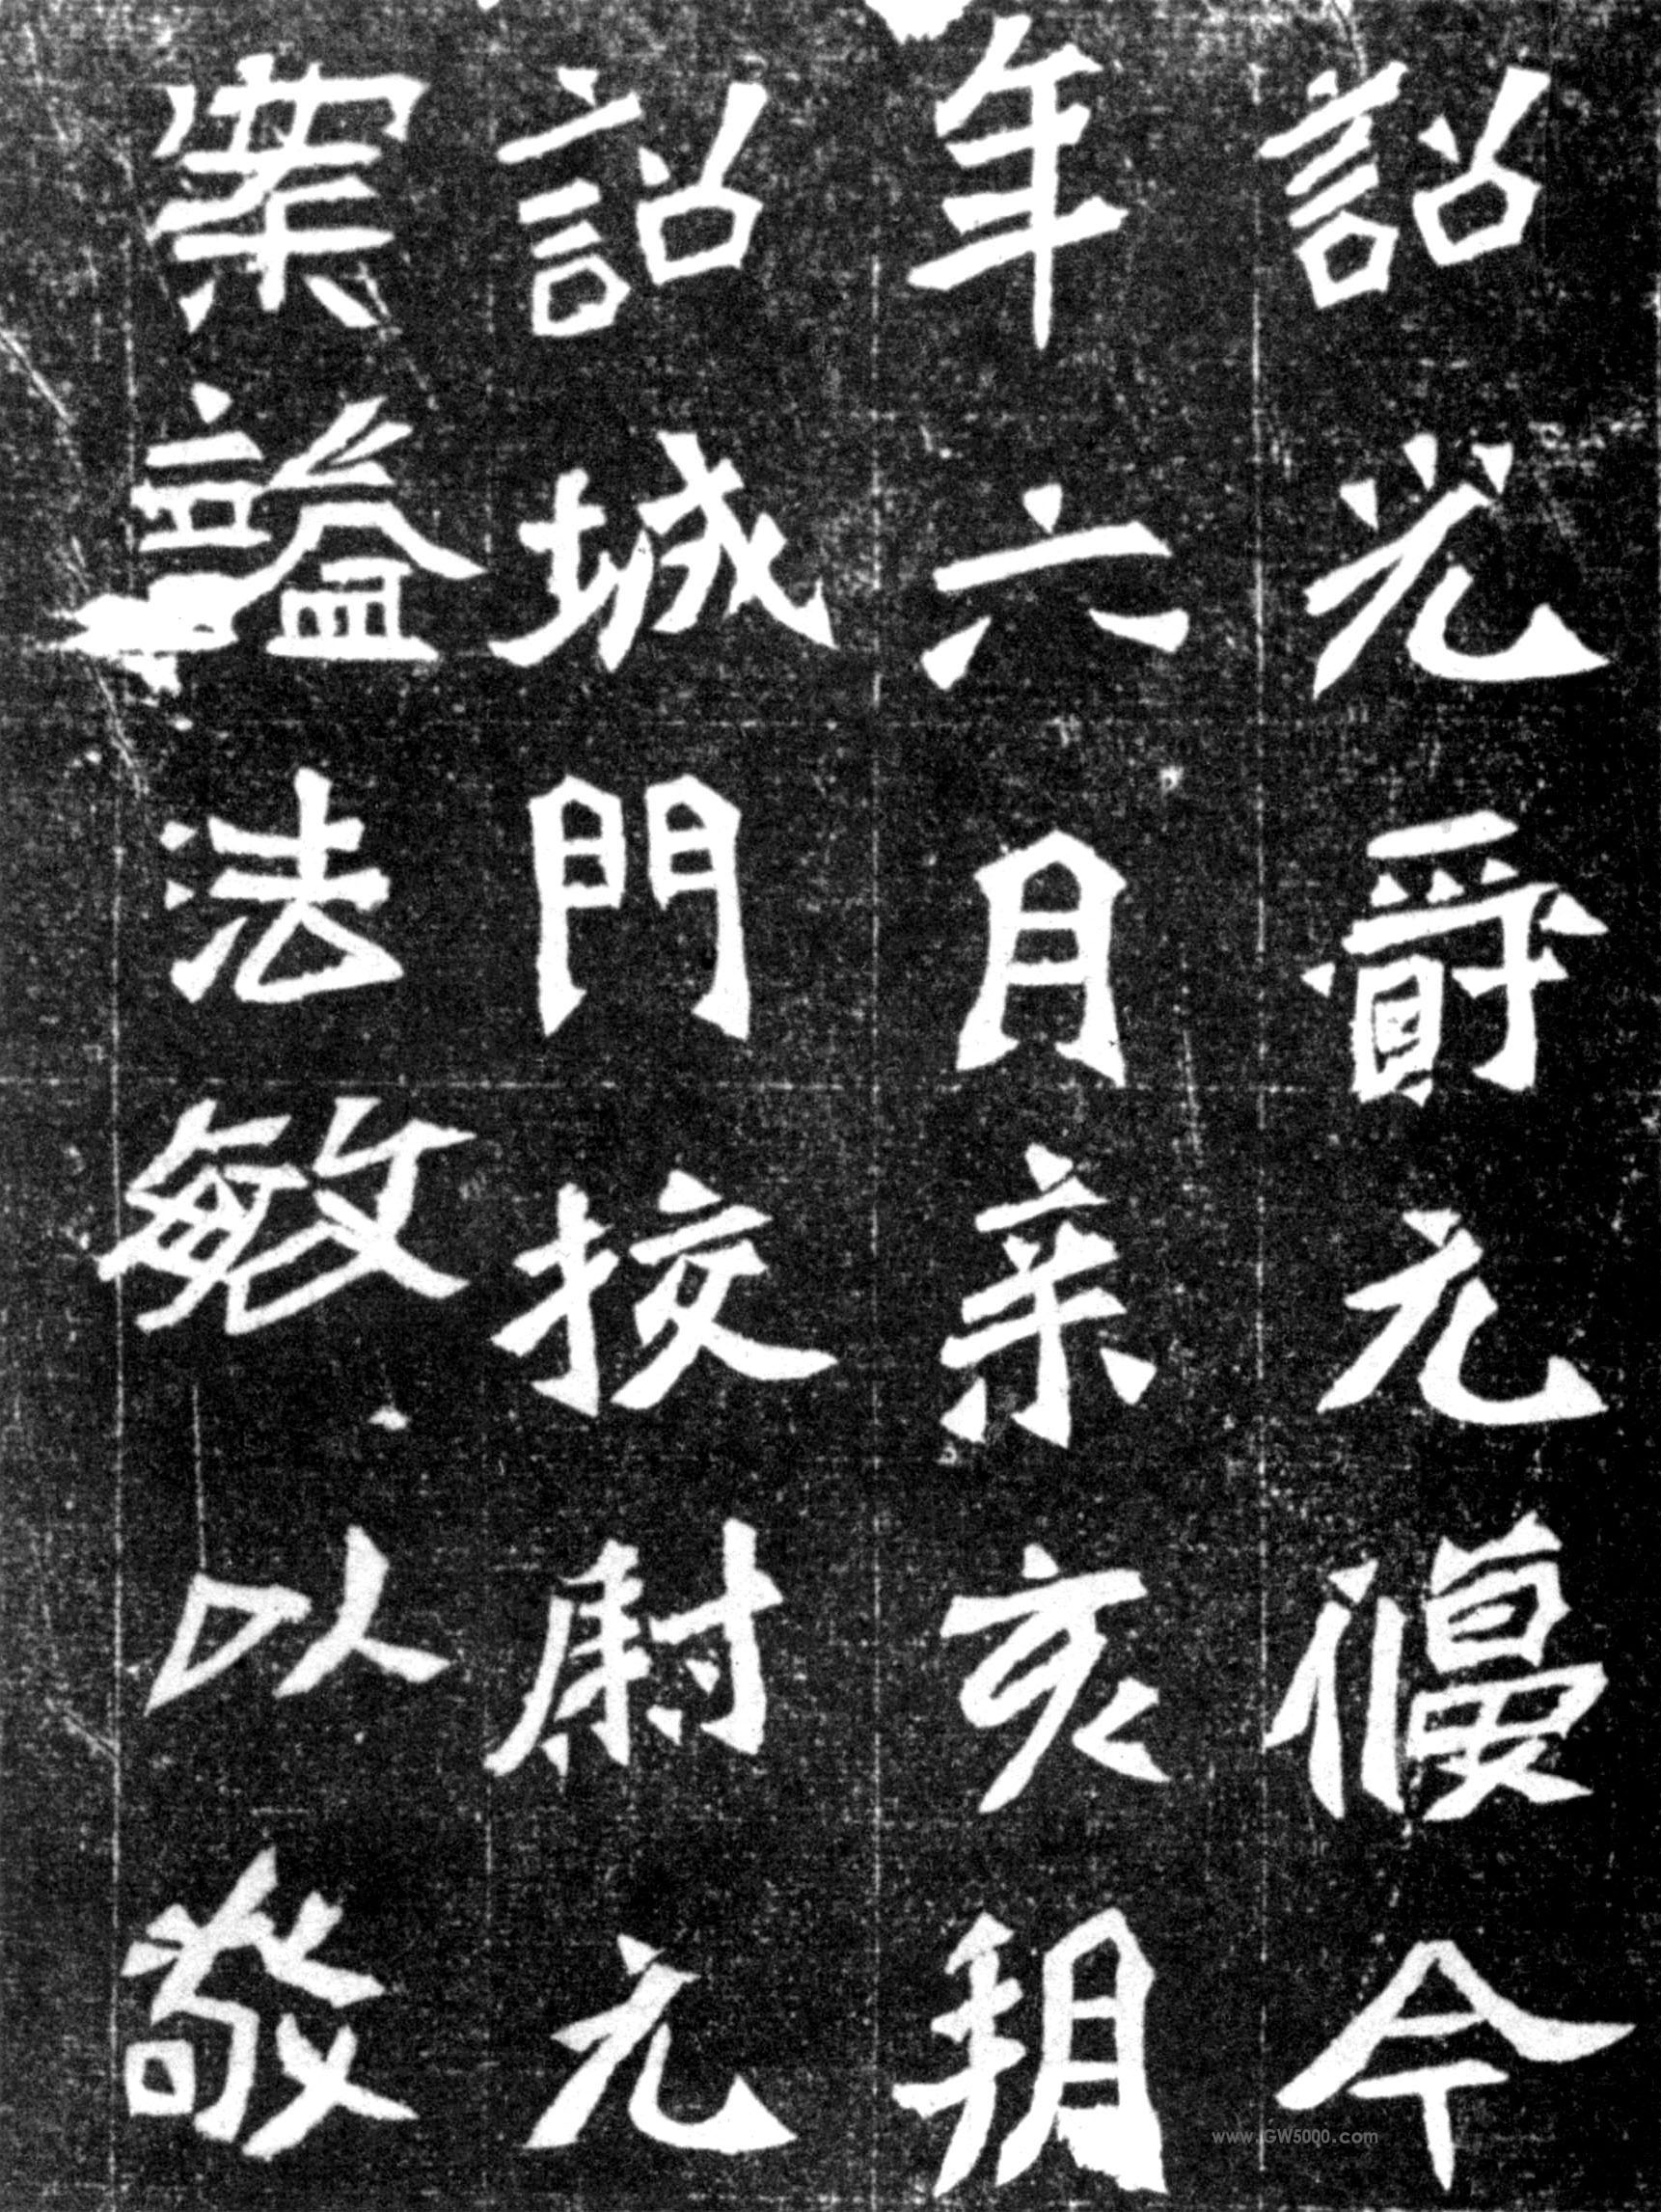 詔光爵元優今
年六月亲亥朔
詔城門挍尉元
案謚法敏以敬
www.GW5000.com